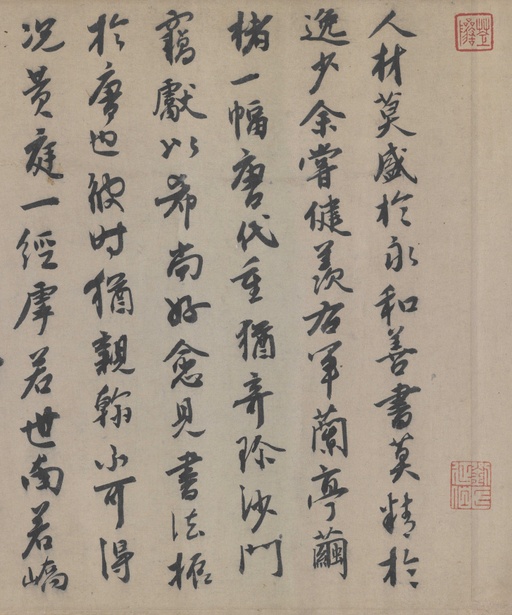 人材莫盛於永和善書莫精於
逸少余嘗健羨右軍蘭亭繭
楮一幅唐代重猶奇珍沙門
竊獻以希尚好愈見書法振
於唐也彼時猶親翰不可得
況黃庭一經虖若世南若嶠